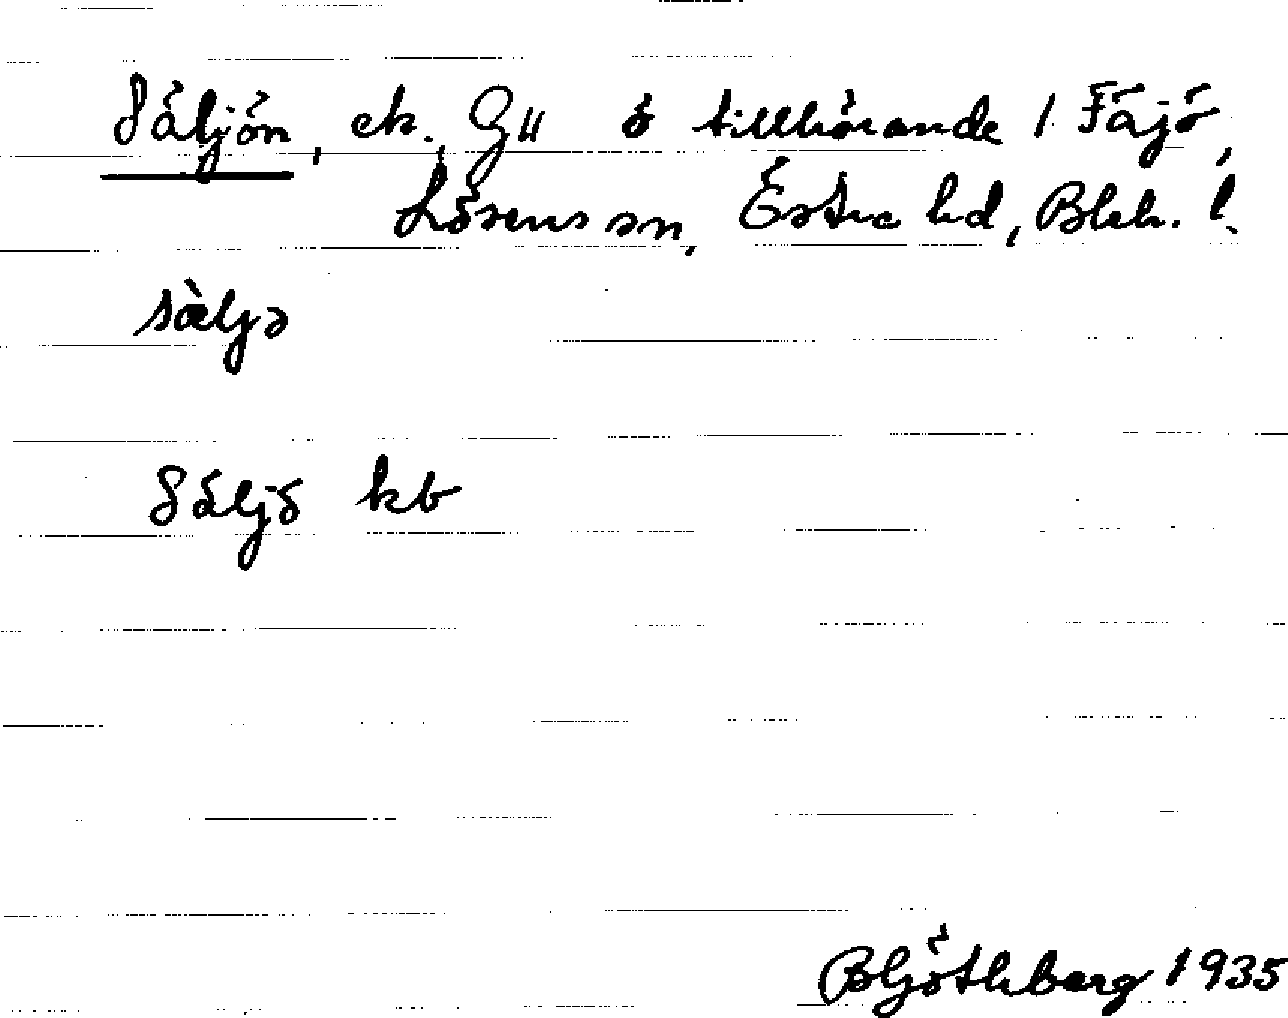 Säljön, ek. G4 ö tillhörande 1 Fäjö,
Lösens sn, Östra hd, Blek. l.
sàljə
Säljö kb
B Götlzberg 1935